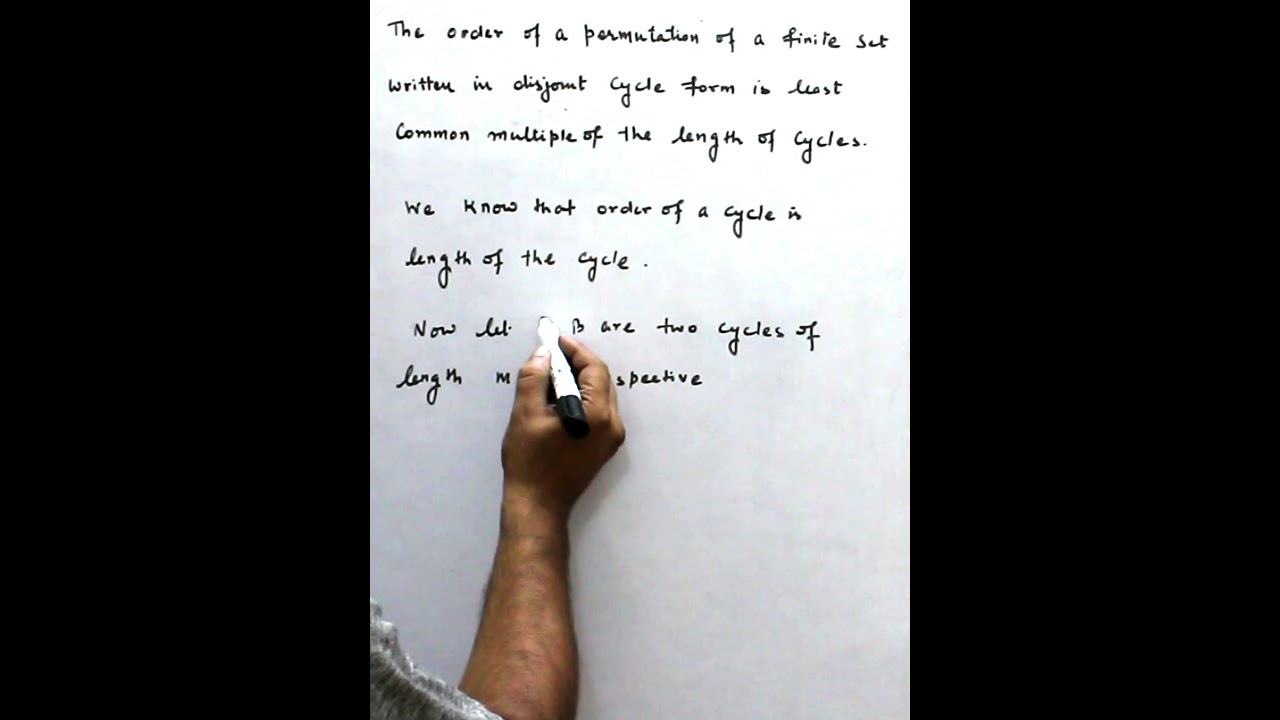 The order of a permutation of a finite set
written in disjoint cycle form is least
Common multiple of the length of cycles.
We know that order of a cycle is
length of the cycle.
Now let B are two cycles of
length m spective